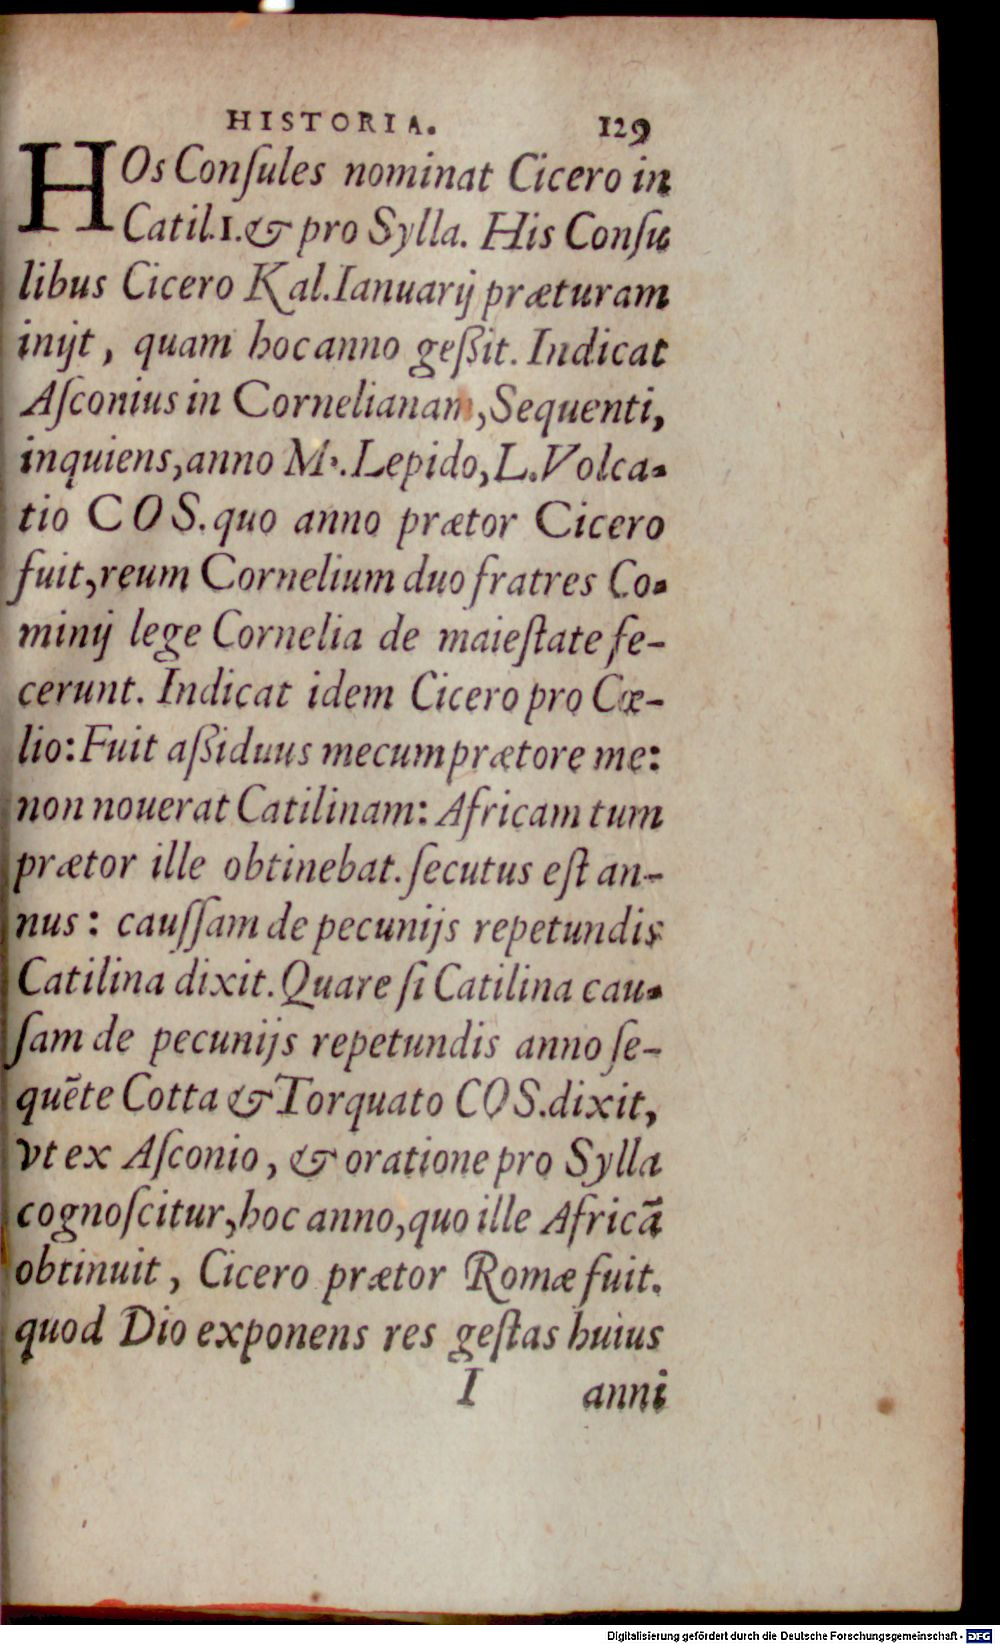 HISTORIA. 129
HOs Conſules nominat Cicero in
Catil.1.& pro Sylla. His Conſu
libus Cicero Kal.Ianuarij præturam
inijt, quam hoc anno geßit. Indicat
Aſconius in Cornelianam, Sequenti,
inquiens, anno M'. Lepido, L. Volca-
tio COS. quo anno prætor Cicero
fuit, reum Cornelium duo fratres Co-
minij lege Cornelia de maieſtate fe-
cerunt. Indicat idem Cicero pro Cœ-
lio: Fuit aßiduus mecum prætore me:
non nouerat Catilinam: Africam tum
prætor ille obtinebat. ſecutus eſt an-
nus: cauſſam de pecunijs repetundis
Catilina dixit. Quare ſi Catilina cau-
ſam de pecunijs repetundis anno ſe-
quẽte Cotta & Torquato COS. dixit,
vt ex Aſconio, & oratione pro Sylla
cognoſcitur, hoc anno, quo ille Africã
obtinuit, Cicero prætor Romæ fuit.
quod Dio exponens res geſtas huius
I anni
Digitalisierung gefördert durch die Deutsche Forschungsgemeinschaft - DFG